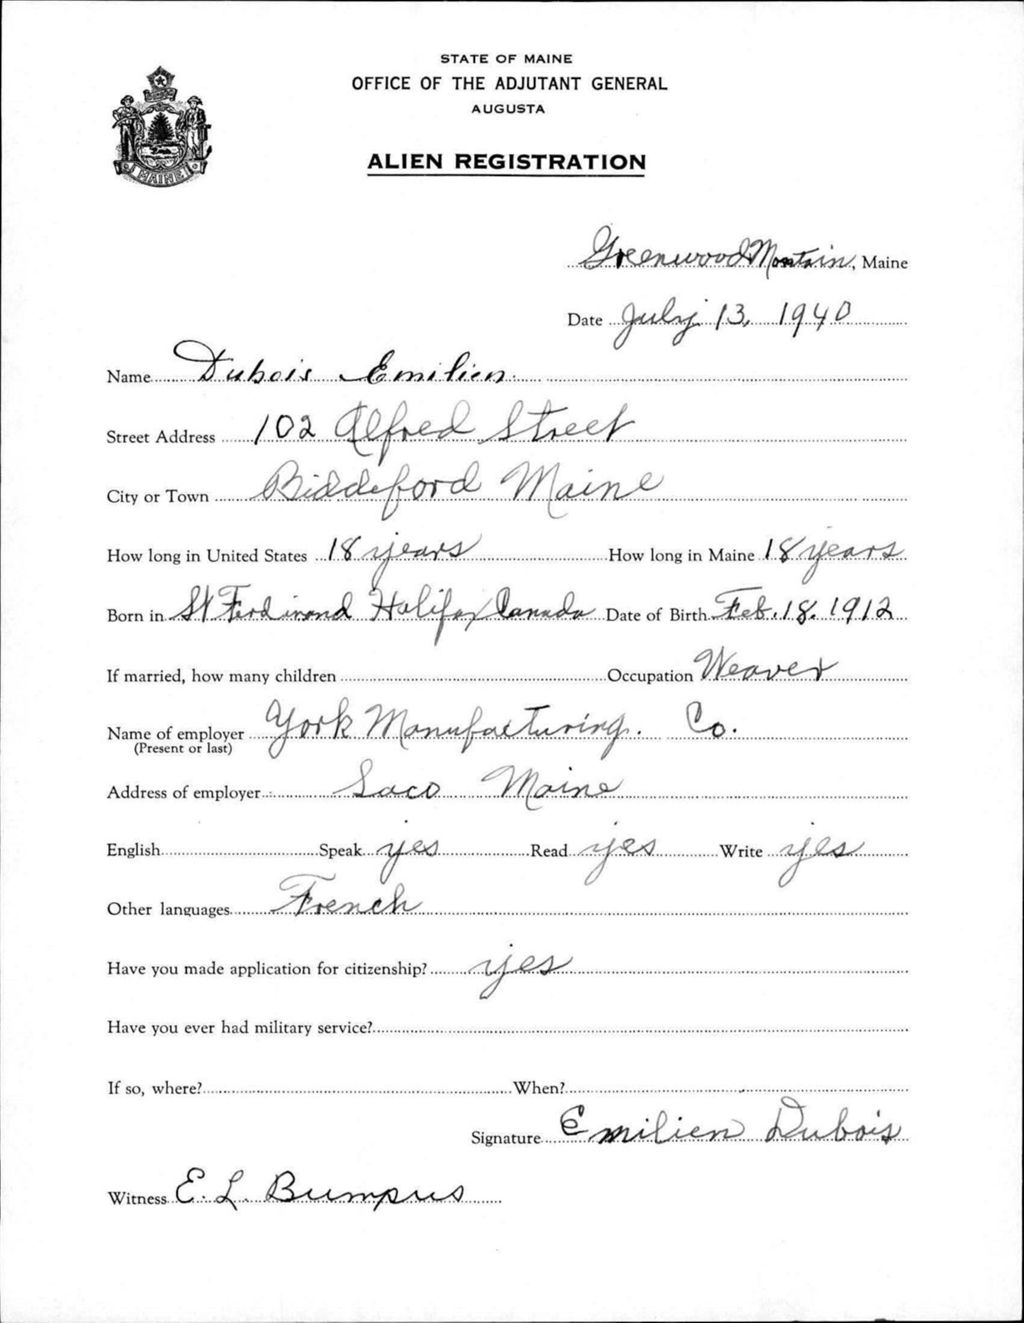 STATE OF MAINE
OFFICE OF THE ADJUTANT GENERAL
AUGUSTA
ALIEN REGISTRATION
MAINE
Greenwood Montain, Maine
Date July 13, 1940
Name Dubois Emilien
Street Address 102 Alfred Street
City or Town Biddeford Maine
How long in United States 18 years How long in Maine 18 years
Born in St Ferdinand Halifax Canada Date of Birth Feb. 18. 1912
If married, how many children Occupation Weaver
Name of employer York Manufacturing. Co.
(Present or last)
Address of employer Saco Maine
English Speak yes Read yes Write yes
Other languages French
Have you made application for citizenship? yes
Have you ever had military service?
If so, where? When?
Signature Emilien Dubois
Witness E. L. Bumpus